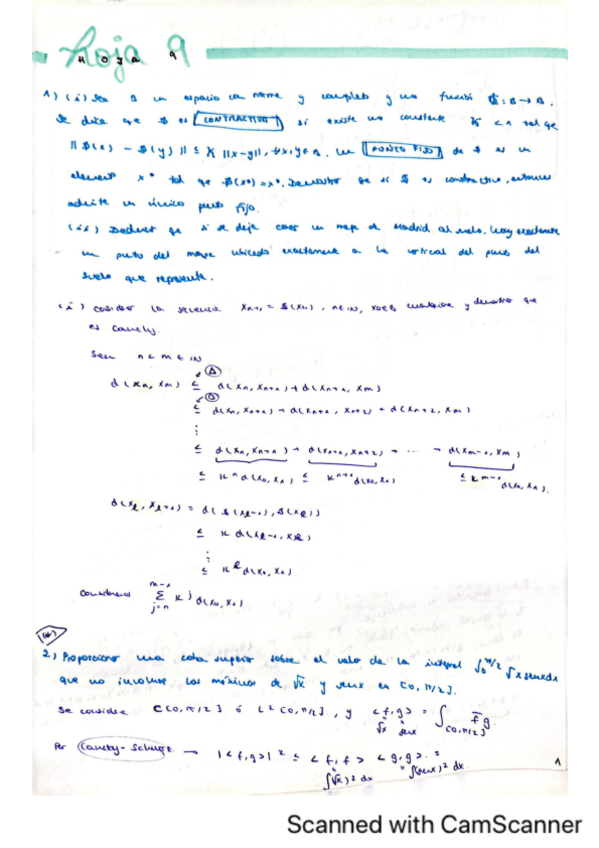 Hoja 9
HOJA 9
1) (i) Sea B un espacio con norma y completo y una función f: B→B.
Se dice que f es CONTRACTIVA si existe una constante K < 1 tal que
||f(x) - f(y)|| ≤ K ||x-y||, ∀x,y∈B. Un PUNTO FIJO de f es un
elemento x* tal que f(x*) = x*. Demostrar que si f es contractiva, entonces
admite un único punto fijo.
(ii) Deducir que si se deja caer un mapa de Madrid al suelo, hay exactamente
un punto del mapa ubicado exactamente a la vertical del punto del
suelo que representa.
(i) Considerar la secuencia xn+1 = f(xn), n∈IN, x0∈B cualquiera y demostrar que
es Cauchy.
Sean n < m ∈ IN
d(xn, xm) ≤ d(xn, xn+1) + d(xn+1, xm)
≤ d(xn, xn+1) + d(xn+1, xn+2) + d(xn+2, xm)
⋮
≤ d(xn, xn+1) + d(xn+1, xn+2) + ... + d(xm-1, xm)
≤ K^n d(x0, x1) ≤ K^n+1 d(x0, x1) ≤ K^m-1 d(x0, x1).
d(xl, xl+1) = d(f(xl-1), f(xl))
≤ K d(xl-1, xl)
⋮
≤ K^l d(x0, x1)
Consideramos Σ_{j=n}^{m-1} K^j d(x0, x1)
2) Proporcionar una cota superior sobre el valor de la integral ∫0^π/2 √x senx dx
que no involucre los máximos de √x y senx en [0, π/2].
Se considera C[0, π/2] ó L²[0, π/2], y <f,g> = ∫[0,π/2] f̄g.
√x senx
Por Cauchy-Schwarz → |<f,g>|² ≤ <f,f> <g,g> =
∫(√x)² dx ∫(senx)² dx
1
Scanned with CamScanner